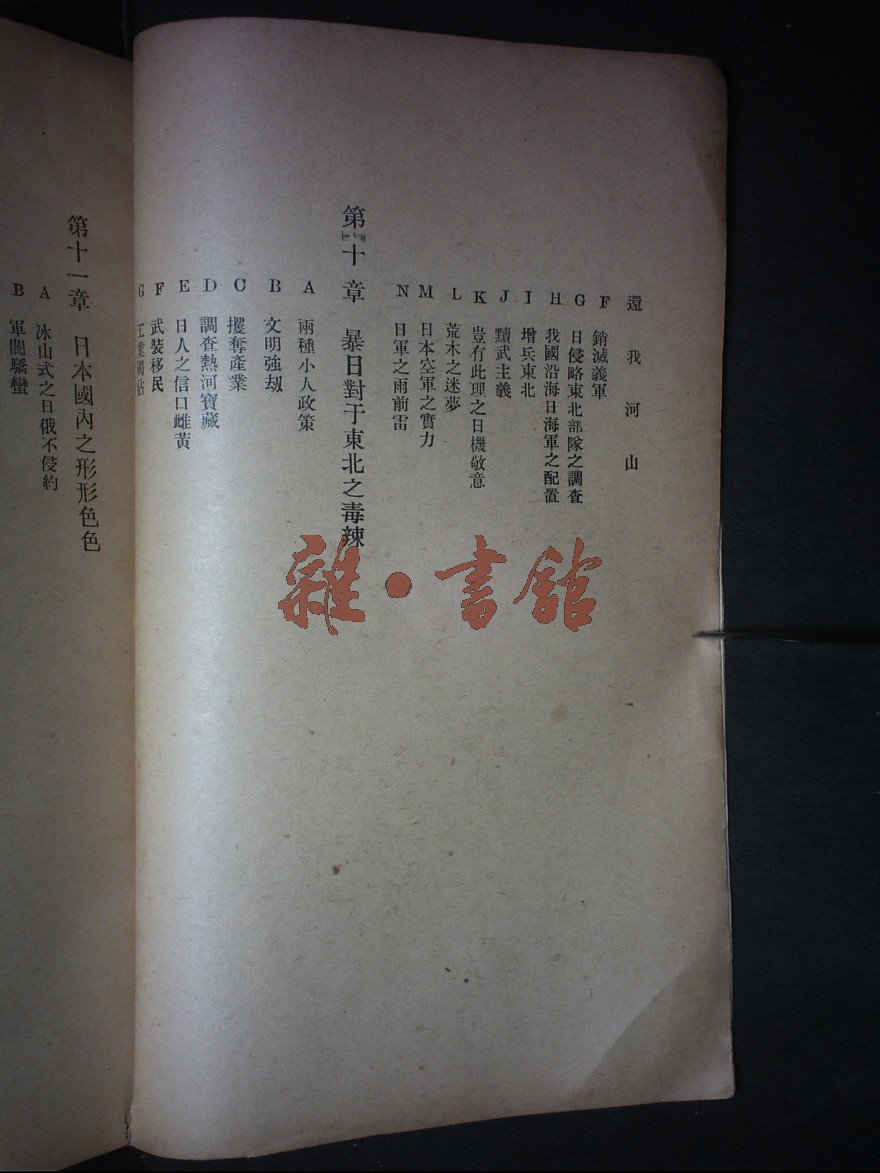 還我河山
F 銷滅義軍
G 日侵略東北部隊之調查
H 我國沿海日海軍之配置
I 增兵東北
J 黷武主義
K 豈有此理之日機敬意
L 荒木之迷夢
M 日本空軍之實力
N 日軍之雨前雷
第十章 暴日對于東北之毒辣
A 兩種小人政策
B 文明強刼
C 攫奪產業
D 調查熱河寶藏
E 日人之信口雌黃
F 武裝移民
G 工業獨佔
第十一章 日本國內之形形色色
A 冰山式之日俄不侵約
B 軍閥驕蠻
雜·書館